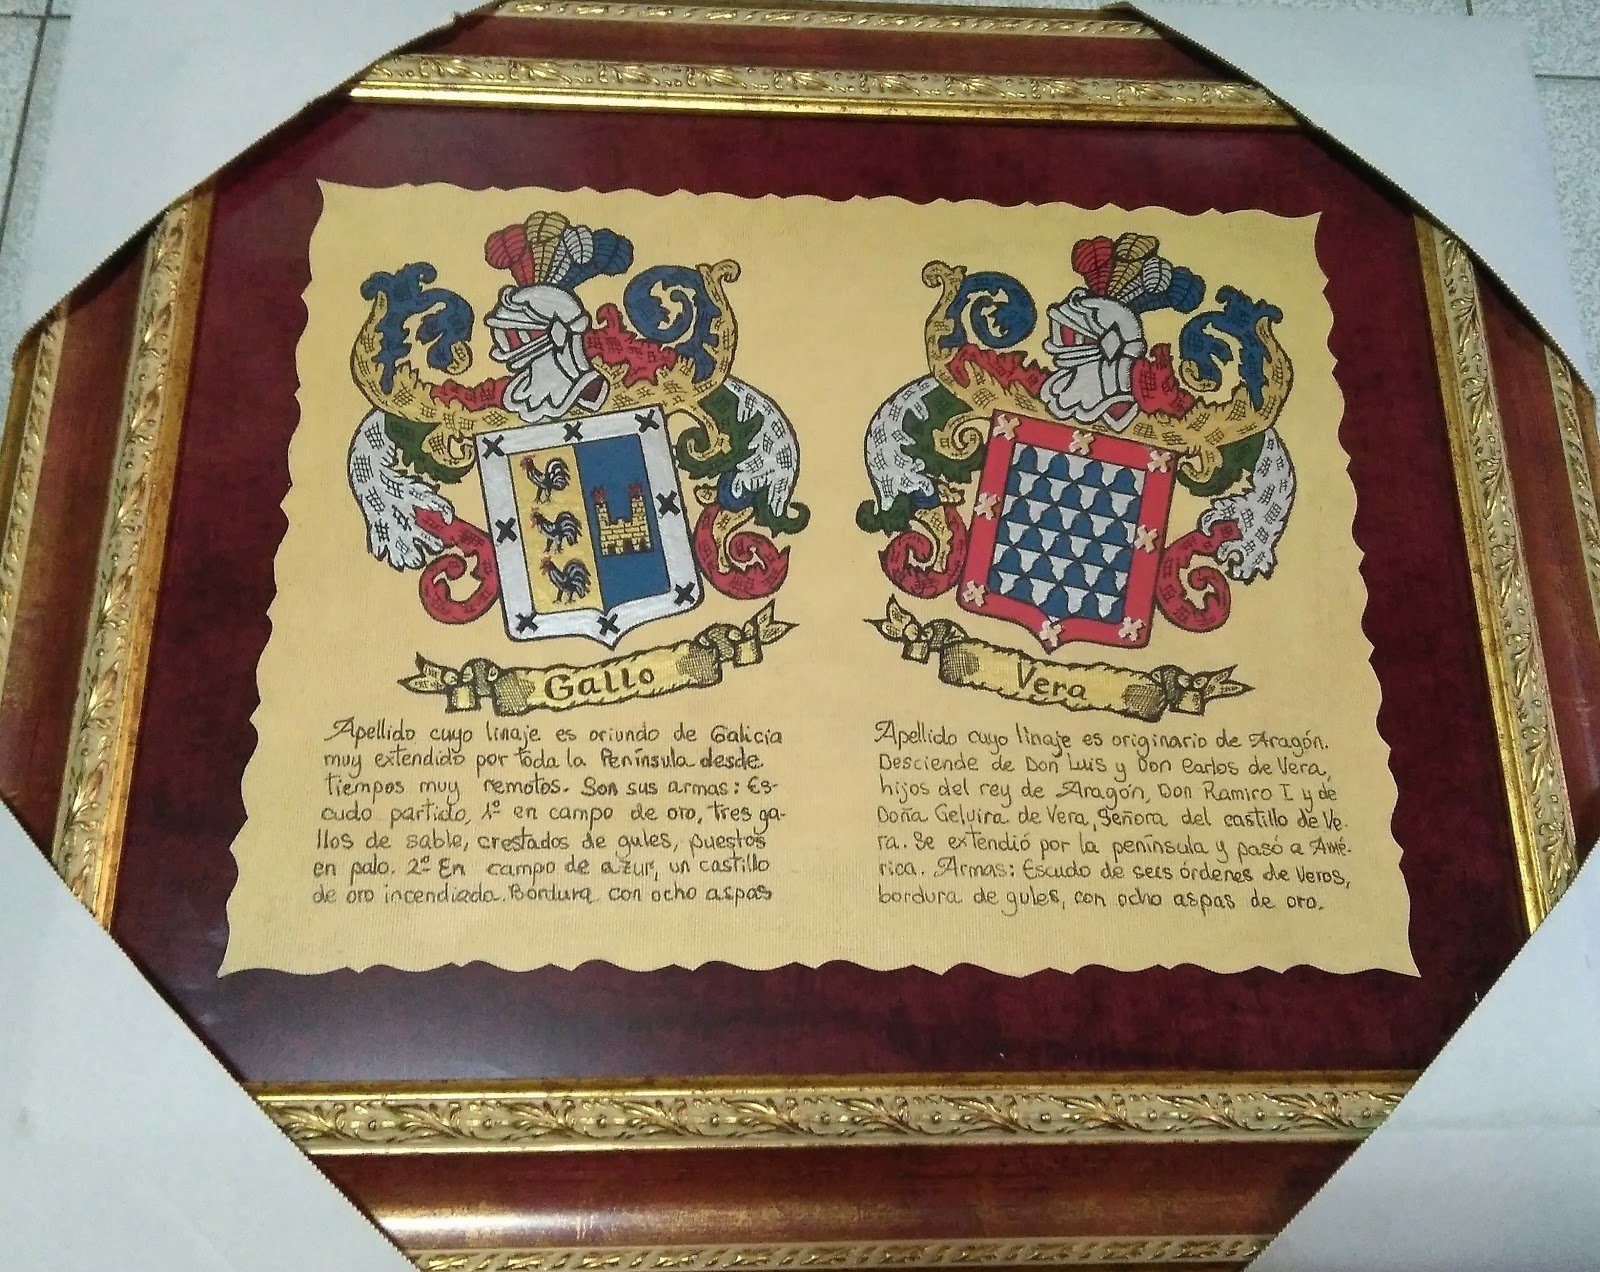 Gallo
Apellido cuyo linaje es oriundo de Galicia
muy extendido por toda la Península desde
tiempos muy remotos. Son sus armas: Es-
cudo partido, 1º en campo de oro, tres ga-
llos de sable, crestados de gules, puestos
en palo. 2º En campo de azur, un castillo
de oro incendiado. Bordura con ocho aspas
Vera
Apellido cuyo linaje es originario de Aragón.
Desciende de Don Luis y Don Carlos de Vera,
hijos del rey de Aragón, Don Ramiro I y de
Doña Geluira de Vera, Señora del castillo de Ve-
ra. Se extendió por la península y pasó a Amé-
rica. Armas: Escudo de seis órdenes de Veros,
bordura de gules, con ocho aspas de oro.